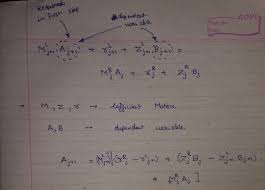 Required
in first step
dependent
variable
M^L_{j+1} (A_{j+1}) + r^L_{j+1} + Z^L_{j+1} (B_{j+1}) =
M^R_j A_j + r^R_j + Z^R_j B_j
→ M, Z, r → Coefficient Matrix
A, B → dependent variable.
A_{j+1} = [M^L_{j+1}]^{-1} [(r^R_j - r^L_{j+1}) + (Z^R_j B_j - Z^L_{j+1} B_{j+1})
+ M^R_j A_j]